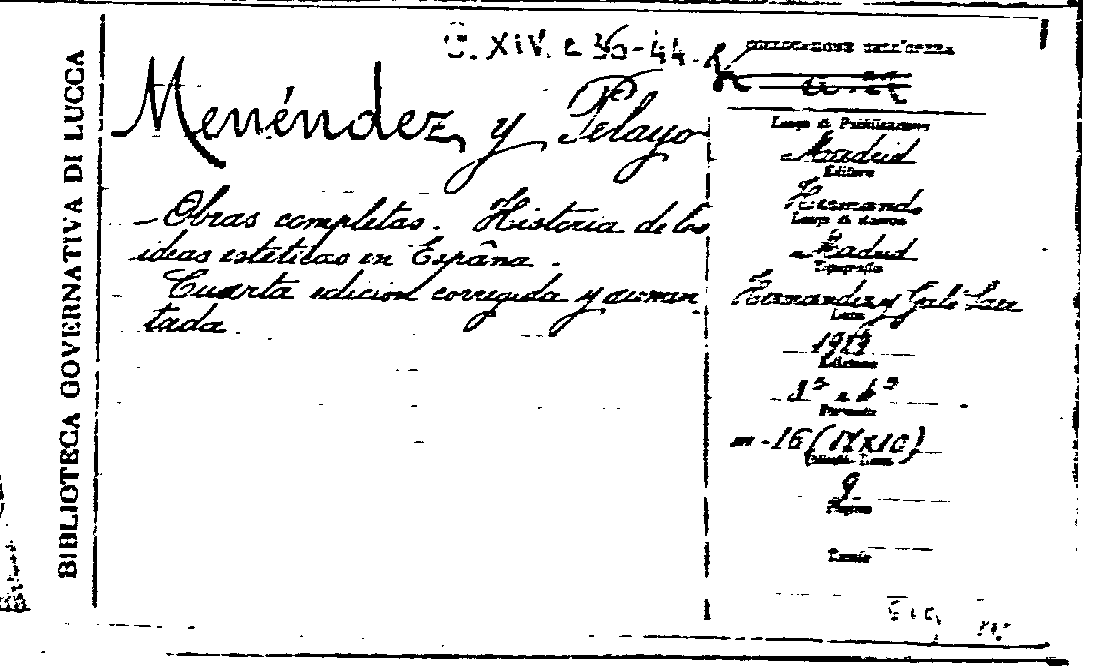 BIBLIOTECA GOVERNATIVA DI LUCCA
XIV. e 36-44.
COLLOCAZIONE DELL'OPERA
Menéndez y Pelayo
- Obras completas. Historia de los
ideas estéticas en España.
Cuarta edicion corregida y aumen
tada.
Luogo di Pubblicazione
Madrid
Editore
Hernando
Luogo di stampa
Madrid
Tipografia
Hernandez y Galo Saez
Formato
in-16 (17x10)
9
Pagine